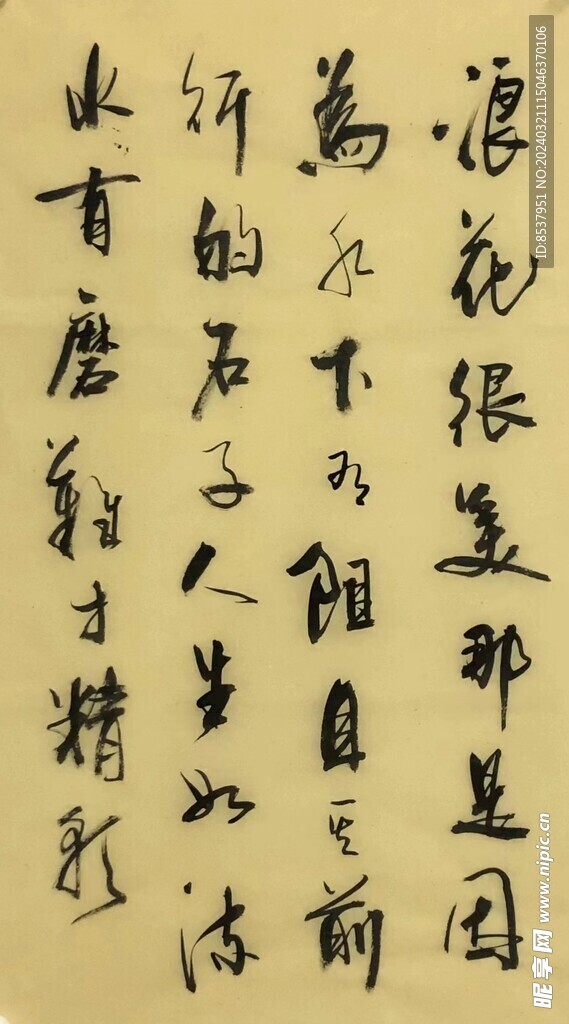 浪花很美那是因
為水下有阻且其前
行的石子人生如流
水有磨難才精彩
ID:8537951 NO:20240321115046370106
昵享网 www.nipic.cn